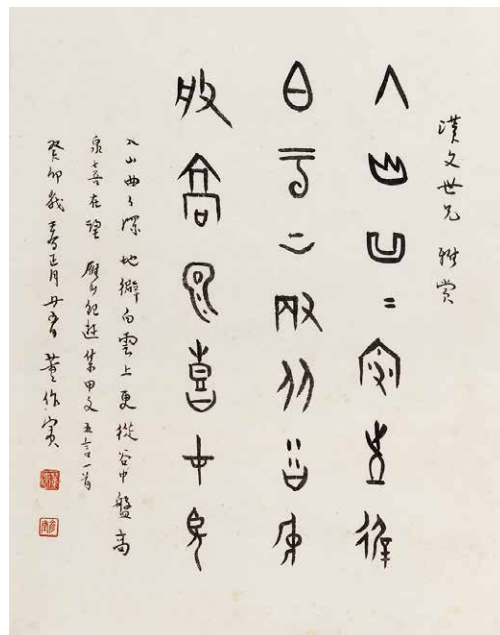 漢文世兄 雅賞
入山曲〻深地僻
白雲上更从谷中
般高泉喜在望
入山曲〻深 地僻白雲上 更從谷中盤 高
泉喜在望 雁山紀遊集甲文五言一首
癸卯歲春正月廿五日 董作賓